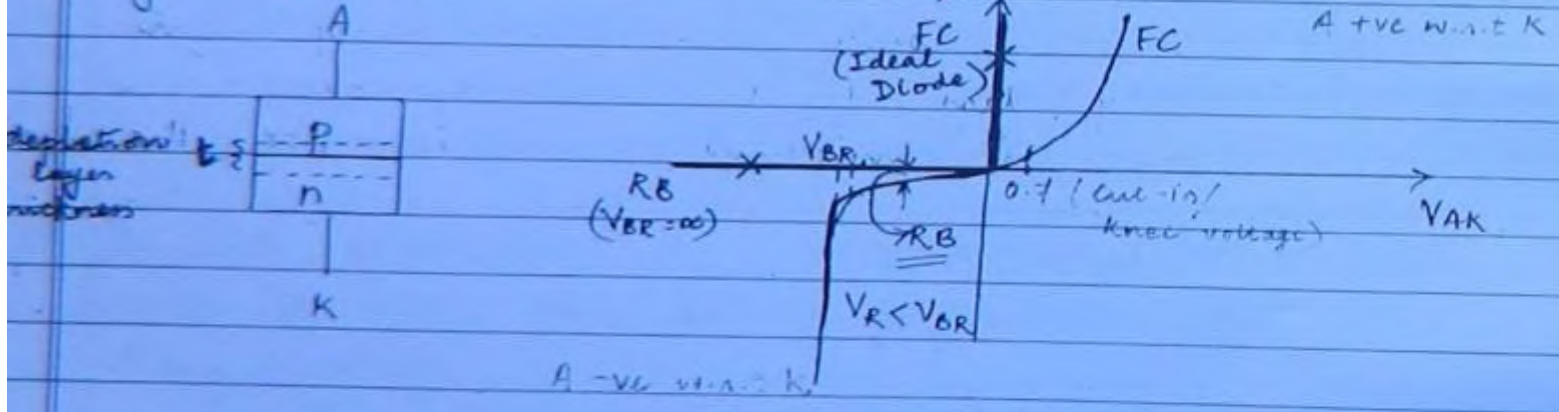 A
depletion t
layer
thickness
p
n
K
FC
(Ideal
Diode)
FC
A +ve w.r.t K
VBR
RB
(VBR = ∞)
RB
0.7 (cut-in/
knee voltage)
VAK
VR < VBR
A -ve w.r.t K